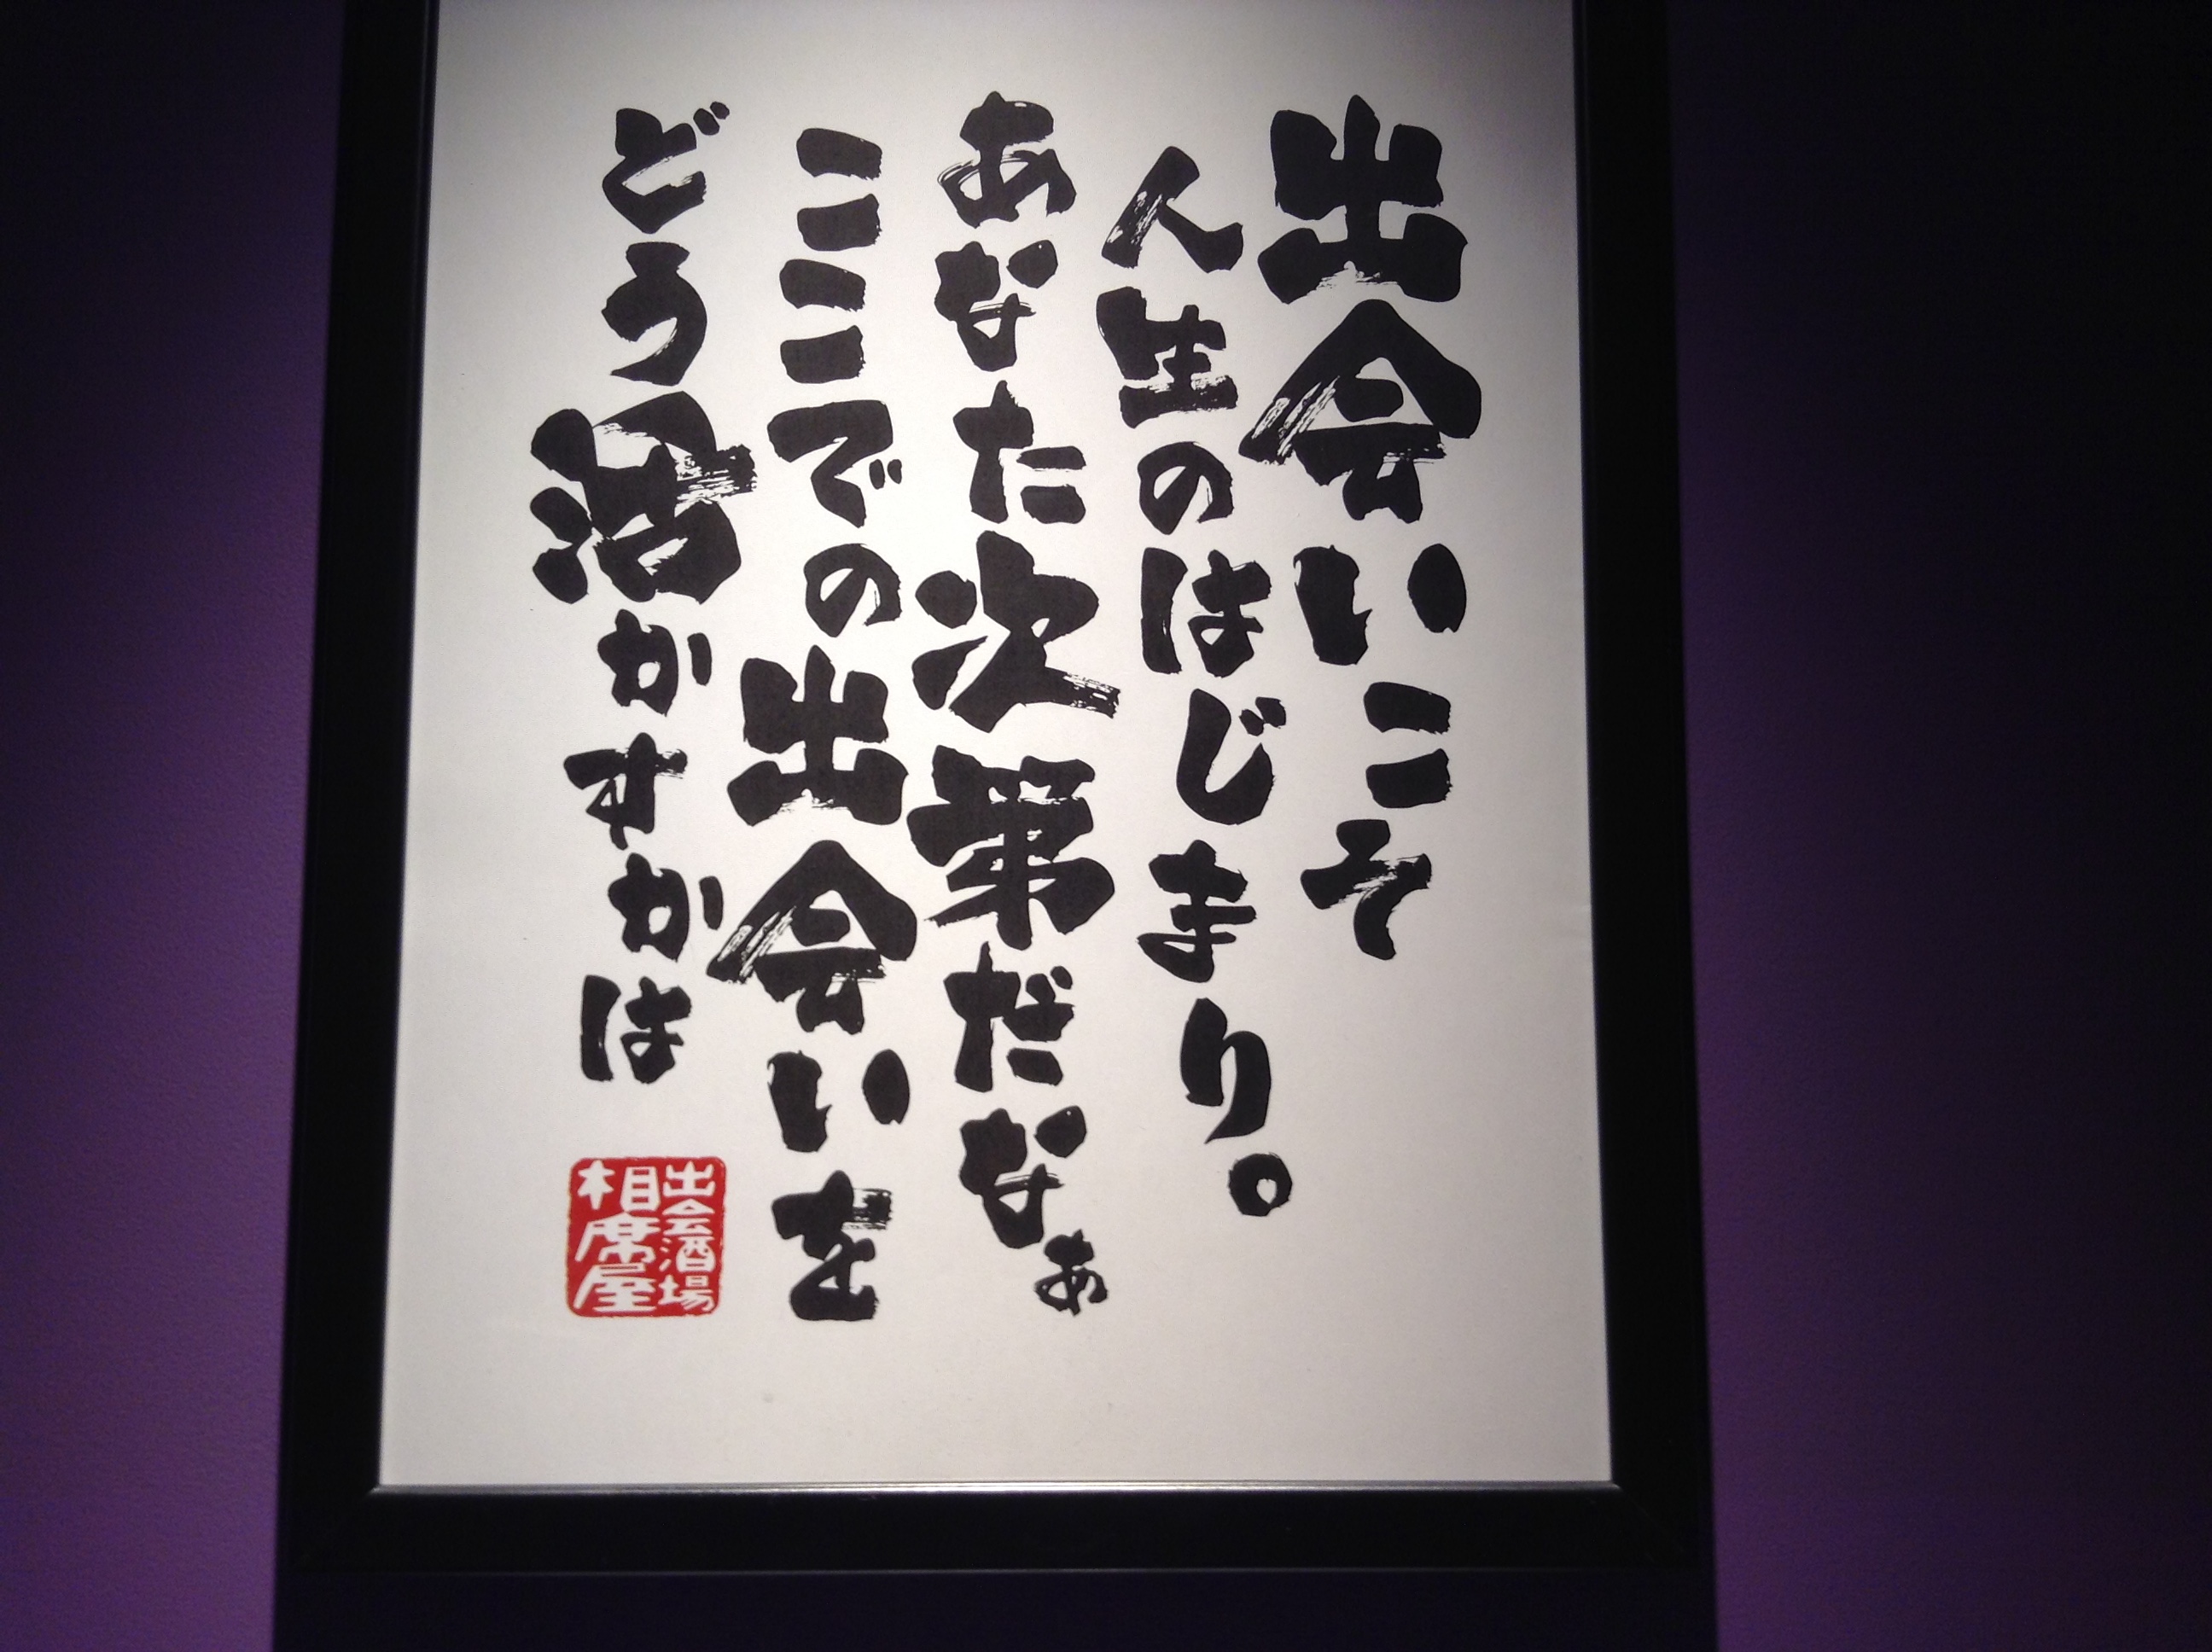 出会いこそ
人生のはじまり。
あなた次第だなぁ
ここでの出会いを
どう活かすかは
出会酒場
相席屋